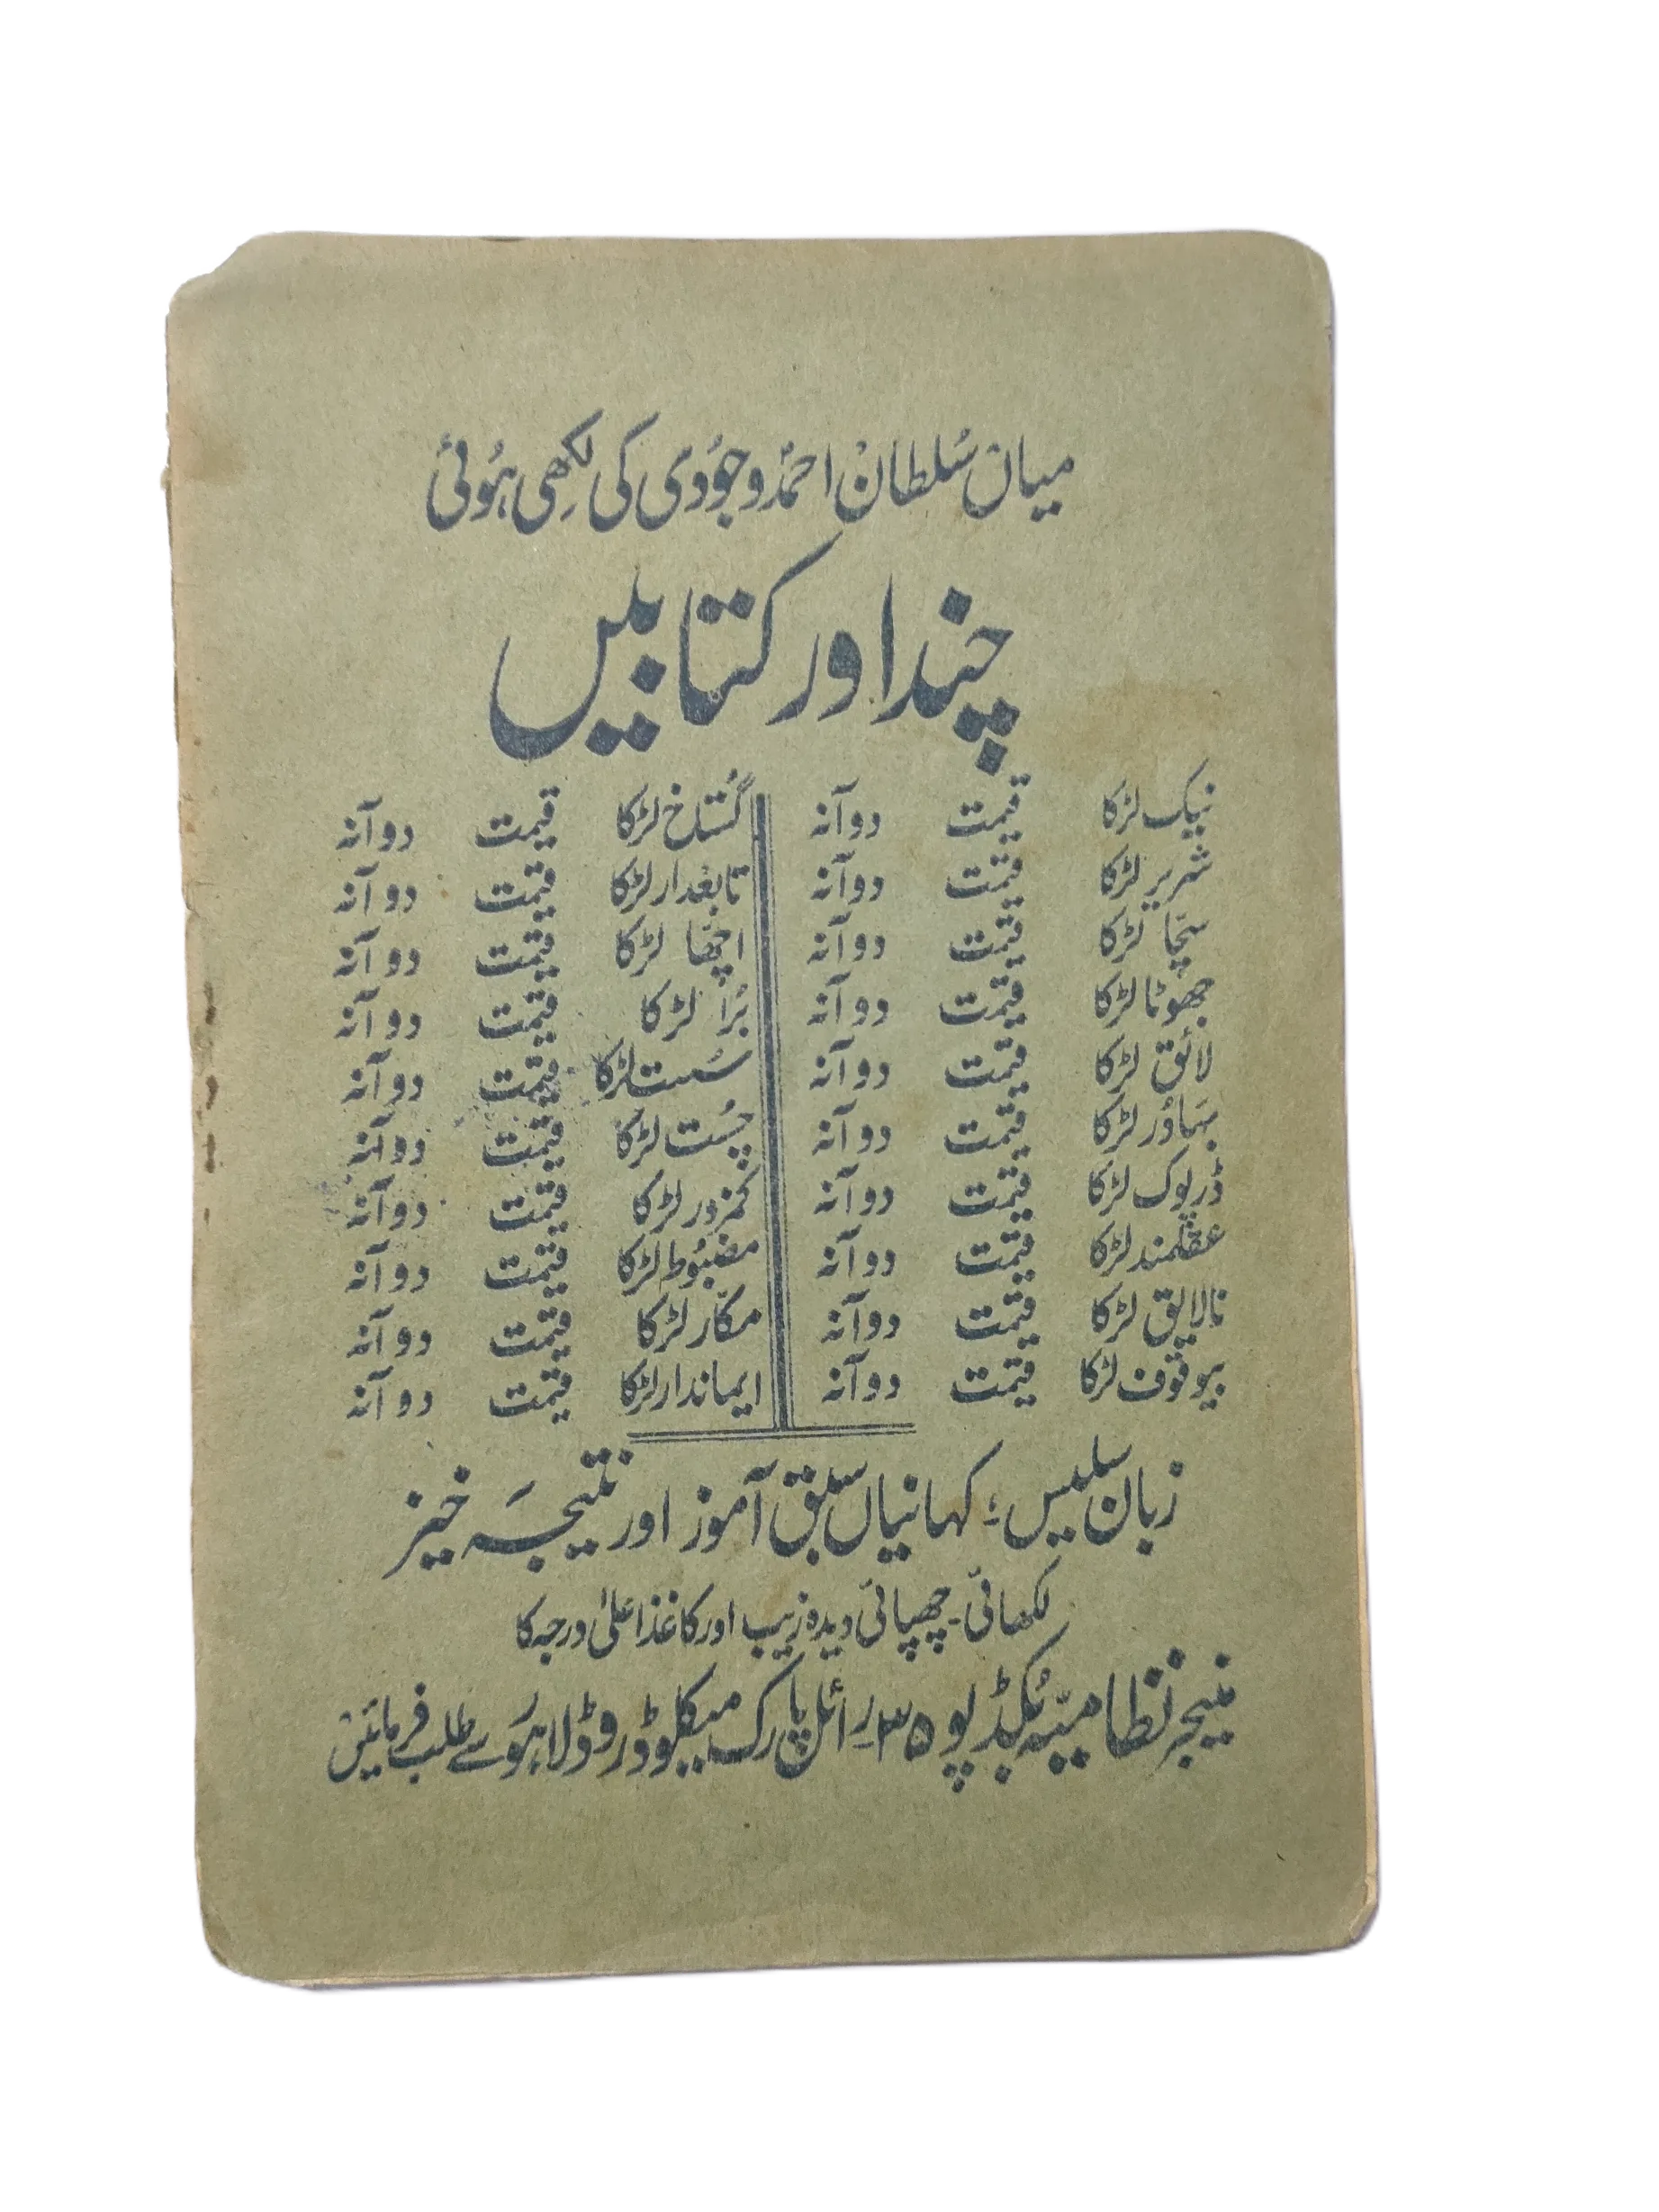 میاں سُلطان احمدؐ وجُودی کی لِکھی ہُوئی
چند اور کتابیں
نیک لڑکا قیمت دو آنہ
شریر لڑکا قیمت دو آنہ
سچّا لڑکا قیمت دو آنہ
جھوٹا لڑکا قیمت دو آنہ
لائق لڑکا قیمت دو آنہ
بہادُر لڑکا قیمت دو آنہ
ڈرپوک لڑکا قیمت دو آنہ
عقلمند لڑکا قیمت دو آنہ
نالایق لڑکا قیمت دو آنہ
بیوقوف لڑکا قیمت دو آنہ
گُستاخ لڑکا قیمت دو آنہ
تابعدار لڑکا قیمت دو آنہ
اچھّا لڑکا قیمت دو آنہ
بُرا لڑکا قیمت دو آنہ
سُست لڑکا قیمت دو آنہ
چُست لڑکا قیمت دو آنہ
کمزور لڑکا قیمت دو آنہ
مضبُوط لڑکا قیمت دو آنہ
مکّار لڑکا قیمت دو آنہ
ایماندار لڑکا قیمت دو آنہ
زبان سلیس؛ کہانیاں سبق آموز اور نتیجہ خیز
لکھائی۔ چھپائی دیدہ زیب اور کاغذ اعلیٰ درجہ کا
منیجر نظامیہ بُکڈپو ۳۵ رائل پارک میکلوڈ روڈ لاہور سے طلب فرمائیں